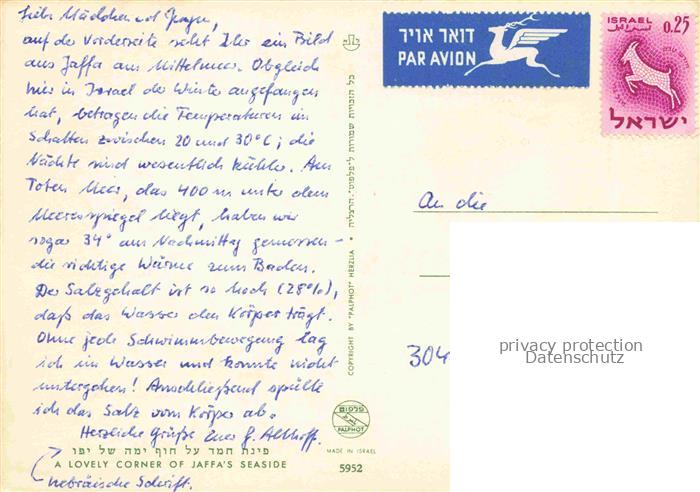 Liebe Mädchen und Jungen,
auf der Vorderseite seht Ihr ein Bild
aus Jaffa am Mittelmeer. Obgleich
hier in Israel der Winter angefangen
hat, betragen die Temperaturen im
Schatten zwischen 20 und 30°C; die
Nächte sind wesentlich kühler. Am
Toten Meer, das 400 m unter dem
Meeresspiegel liegt, haben wir
sogar 34° am Nachmittag gemessen –
die richtige Wärme zum Baden.
Der Salzgehalt ist so hoch (28%),
daß das Wasser den Körper trägt.
Ohne jede Schwimmbewegung lag
ich im Wasser und konnte nicht
untergehen! Anschließend spülte
ich das Salz vom Körper ab.
Herzliche Grüße Euer G. Althoff.
פינת חמד על חוף ימה של יפו
A LOVELY CORNER OF JAFFA'S SEASIDE
hebräische Schrift.
כל הזכויות שמורות ל"פלפוט", הרצליה • COPYRIGHT BY "PALPHOT" HERZLIA
פלפוט
PALPHOT
MADE IN ISRAEL
5952
דואר אויר
PAR AVION
ISRAEL
0.25
ישראל
An die
304
privacy protection
Datenschutz